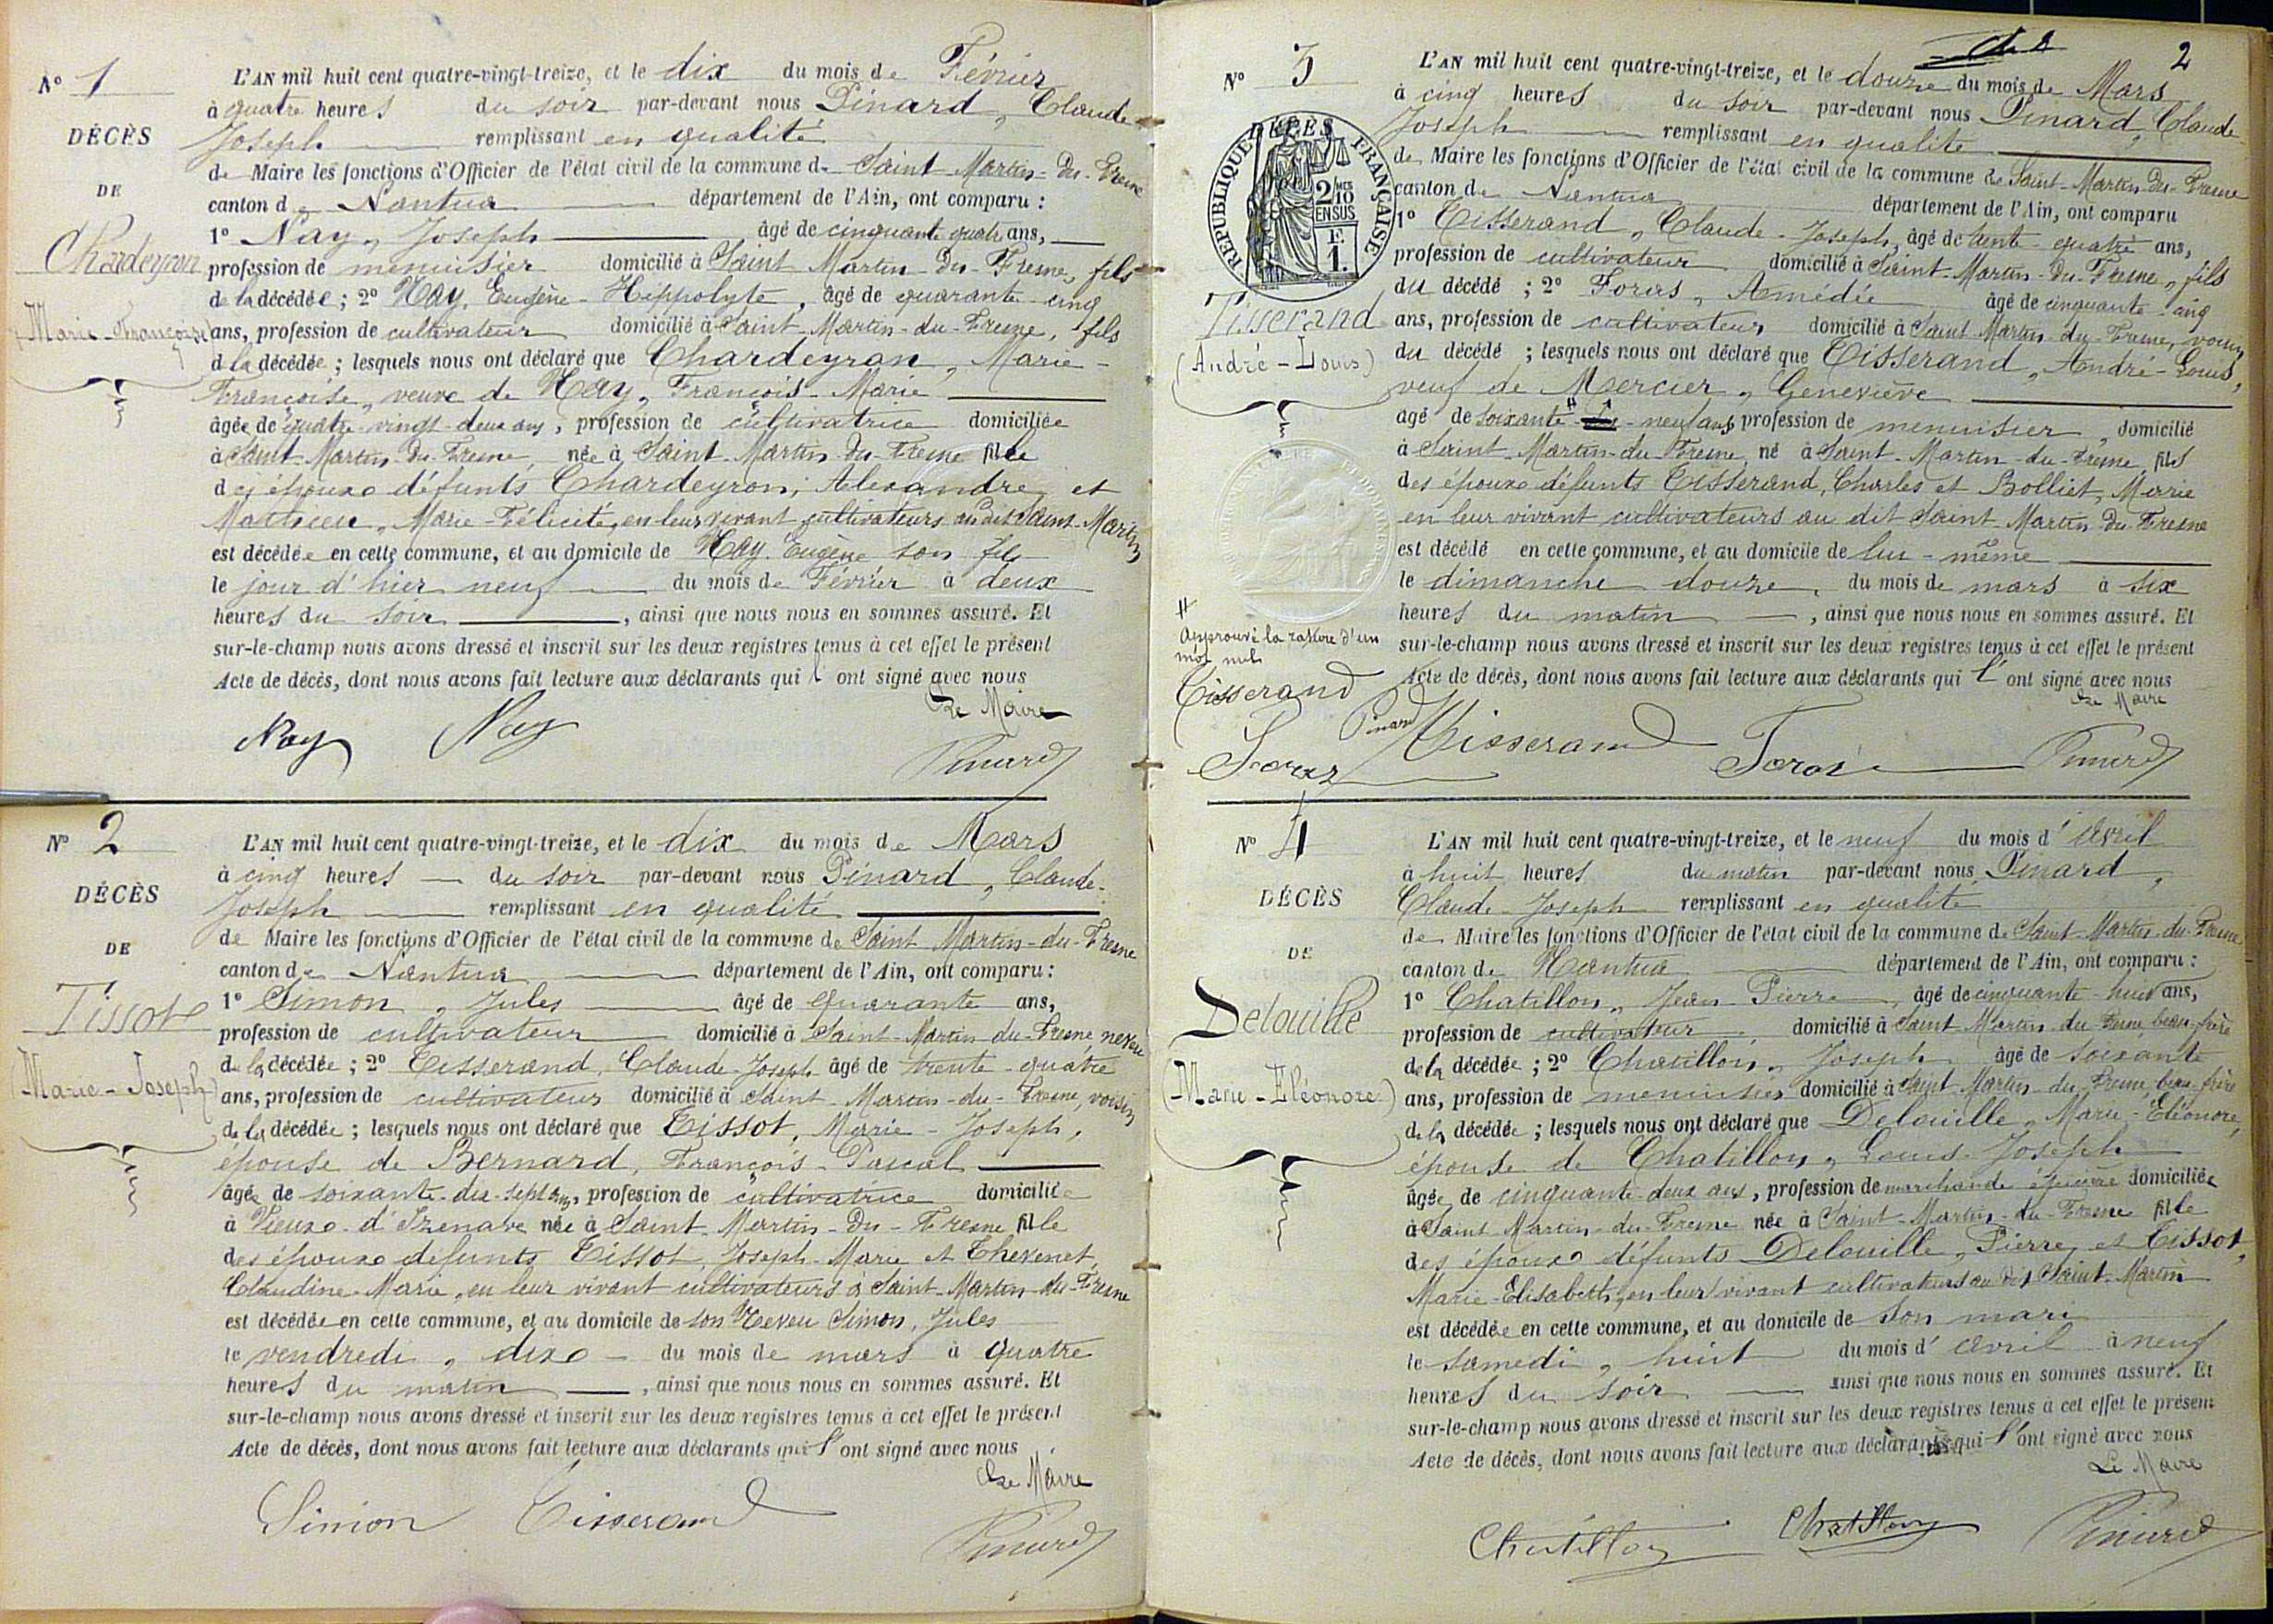 N° 1
DÉCÈS
DE
Chardeyron
(Marie-Françoise)
L'AN mil huit cent quatre-vingt-treize, et le dix du mois de Février
à quatre heures du soir par-devant nous Pinard, Claude-
Joseph remplissant en qualité
de Maire les fonctions d'Officier de l'état civil de la commune de Saint-Martin-du-Fresne
canton de Nantua département de l'Ain, ont comparu :
1° Nay, Joseph âgé de cinquante quatre ans,
profession de menuisier domicilié à Saint Martin-du-Fresne, fils
de la décédée ; 2° Nay, Eugène-Hippolyte, âgé de quarante-cinq
ans, profession de cultivateur domicilié à Saint-Martin-du-Fresne, fils
d la décédée ; lesquels nous ont déclaré que Chardeyron, Marie-
Françoise, veuve de Nay, François-Marie
âgée de quatre-vingt-deux ans, profession de cultivatrice domiciliée
à Saint-Martin-du-Fresne, née à Saint-Martin-du-Fresne fille
des époux défunts Chardeyron, Alexandre, et
Mathieu, Marie-Félicité, en leur vivant cultivateurs au dit Saint-Martin
est décédée en cette commune, et au domicile de Nay Eugène son fils
le jour d'hier neuf du mois de Février à deux
heures du soir, ainsi que nous nous en sommes assuré. Et
sur-le-champ nous avons dressé et inscrit sur les deux registres tenus à cet effet le présent
Acte de décès, dont nous avons fait lecture aux déclarants qui l'ont signé avec nous
Le Maire
Nay Nay Pinard
N° 2
DÉCÈS
DE
Tissot
(Marie-Joseph)
L'AN mil huit cent quatre-vingt-treize, et le dix du mois de Mars
à cinq heures du soir par-devant nous Pinard, Claude-
Joseph remplissant en qualité
de Maire les fonctions d'Officier de l'état civil de la commune de Saint Martin-du-Fresne
canton de Nantua département de l'Ain, ont comparu :
1° Simon, Jules âgé de quarante ans,
profession de cultivateur domicilié à Saint-Martin-du-Fresne, neveu
de la décédée ; 2° Tisserand, Claude-Joseph âgé de trente-quatre
ans, profession de cultivateur domicilié à Saint-Martin-du-Fresne, voisin
de la décédée ; lesquels nous ont déclaré que Tissot, Marie-Joseph,
épouse de Bernard, François-Pascal
âgée de soixante-dix-sept ans, profession de cultivatrice domiciliée
à Vieux-d'Izenave née à Saint-Martin-du-Fresne fille
des époux défunts Tissot, Joseph-Marie et Thevenet,
Claudine-Marie, en leur vivant cultivateurs à Saint-Martin-du-Fresne
est décédée en cette commune, et au domicile de son Neveu Simon, Jules
le vendredi, dix du mois de mars à quatre
heures du matin, ainsi que nous nous en sommes assuré. Et
sur-le-champ nous avons dressé et inscrit sur les deux registres tenus à cet effet le présent
Acte de décès, dont nous avons fait lecture aux déclarants qui l'ont signé avec nous
Le Maire
Simon Tisserand Pinard
2
N° 3
DÉCÈS
RÉPUBLIQUE FRANÇAISE
2/10
EN SUS
F.
1.
Tisserand
(André-Louis)
L'AN mil huit cent quatre-vingt-treize, et le douze du mois de Mars
à cinq heures du soir par-devant nous Pinard, Claude-
Joseph remplissant en qualité
de Maire les fonctions d'Officier de l'état civil de la commune de Saint-Martin-du-Fresne
canton de Nantua département de l'Ain, ont comparu
1° Tisserand, Claude-Joseph, âgé de trente-quatre ans,
profession de cultivateur domicilié à Saint-Martin-du-Fresne, fils
du décédé ; 2° Foras, Amédée âgé de cinquante-cinq
ans, profession de cultivateur, domicilié à Saint-Martin-du-Fresne, voisin
du décédé ; lesquels nous ont déclaré que Tisserand, André-Louis,
veuf de Mercier, Geneviève
âgé de soixante-neuf ans profession de menuisier, domicilié
à Saint-Martin-du-Fresne, né à Saint-Martin-du-Fresne, fils
des époux défunts Tisserand, Charles et Bolliet, Marie
en leur vivant cultivateurs au dit Saint-Martin-du-Fresne
est décédé en cette commune, et au domicile de lui-même
le dimanche douze, du mois de mars à six
heures du matin, ainsi que nous nous en sommes assuré. Et
sur-le-champ nous avons dressé et inscrit sur les deux registres tenus à cet effet le présent
Acte de décès, dont nous avons fait lecture aux déclarants qui l'ont signé avec nous
Le Maire
#
Approuvé la rature d'un
mot nul
Tisserand
Pinard Tisserand Pinard
N° 4
DÉCÈS
DE
Delouille
(Marie-Eléonore)
L'AN mil huit cent quatre-vingt-treize, et le neuf du mois d'avril
à huit heures du matin par-devant nous Pinard,
Claude-Joseph remplissant en qualité
de Maire les fonctions d'Officier de l'état civil de la commune de Saint-Martin-du-Fresne
canton de Nantua département de l'Ain, ont comparu :
1° Chatillon, Jean-Pierre, âgé de cinquante-huit ans,
profession de cultivateur domicilié à Saint Martin-du-Fresne, beau-frère
de la décédée ; 2° Chatillon, Joseph âgé de soixante
ans, profession de menuisier domicilié à Saint Martin-du-Fresne, beau-frère
de la décédée ; lesquels nous ont déclaré que Delouille, Marie-Eléonore,
épouse de Chatillon, Louis-Joseph
âgée de cinquante-deux ans, profession de marchande épicière domiciliée
à Saint Martin-du-Fresne née à Saint-Martin-du-Fresne fille
des époux défunts Delouille, Pierre, et Tissot,
Marie-Elisabeth, en leur vivant cultivateurs au dit Saint-Martin
est décédée en cette commune, et au domicile de son mari
le samedi, huit du mois d'avril à neuf
heures du soir ainsi que nous nous en sommes assuré. Et
sur-le-champ nous avons dressé et inscrit sur les deux registres tenus à cet effet le présent
Acte de décès, dont nous avons fait lecture aux déclarants qui l'ont signé avec nous
Le Maire
Chatillon Chatillon Pinard